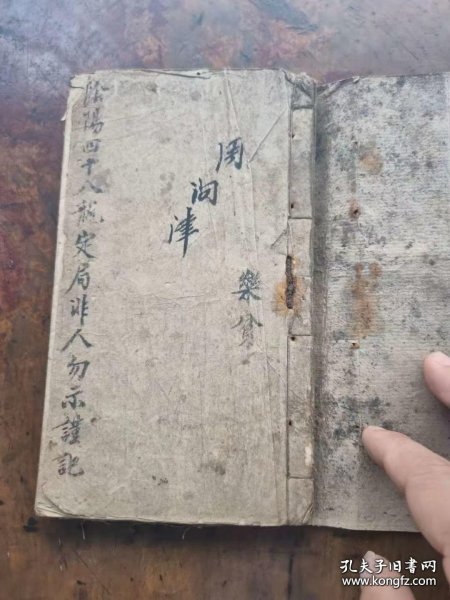 周洵津
樂貧
陰陽四十八龍定局非人勿示謹記
孔夫子旧书网
www.kongfz.com